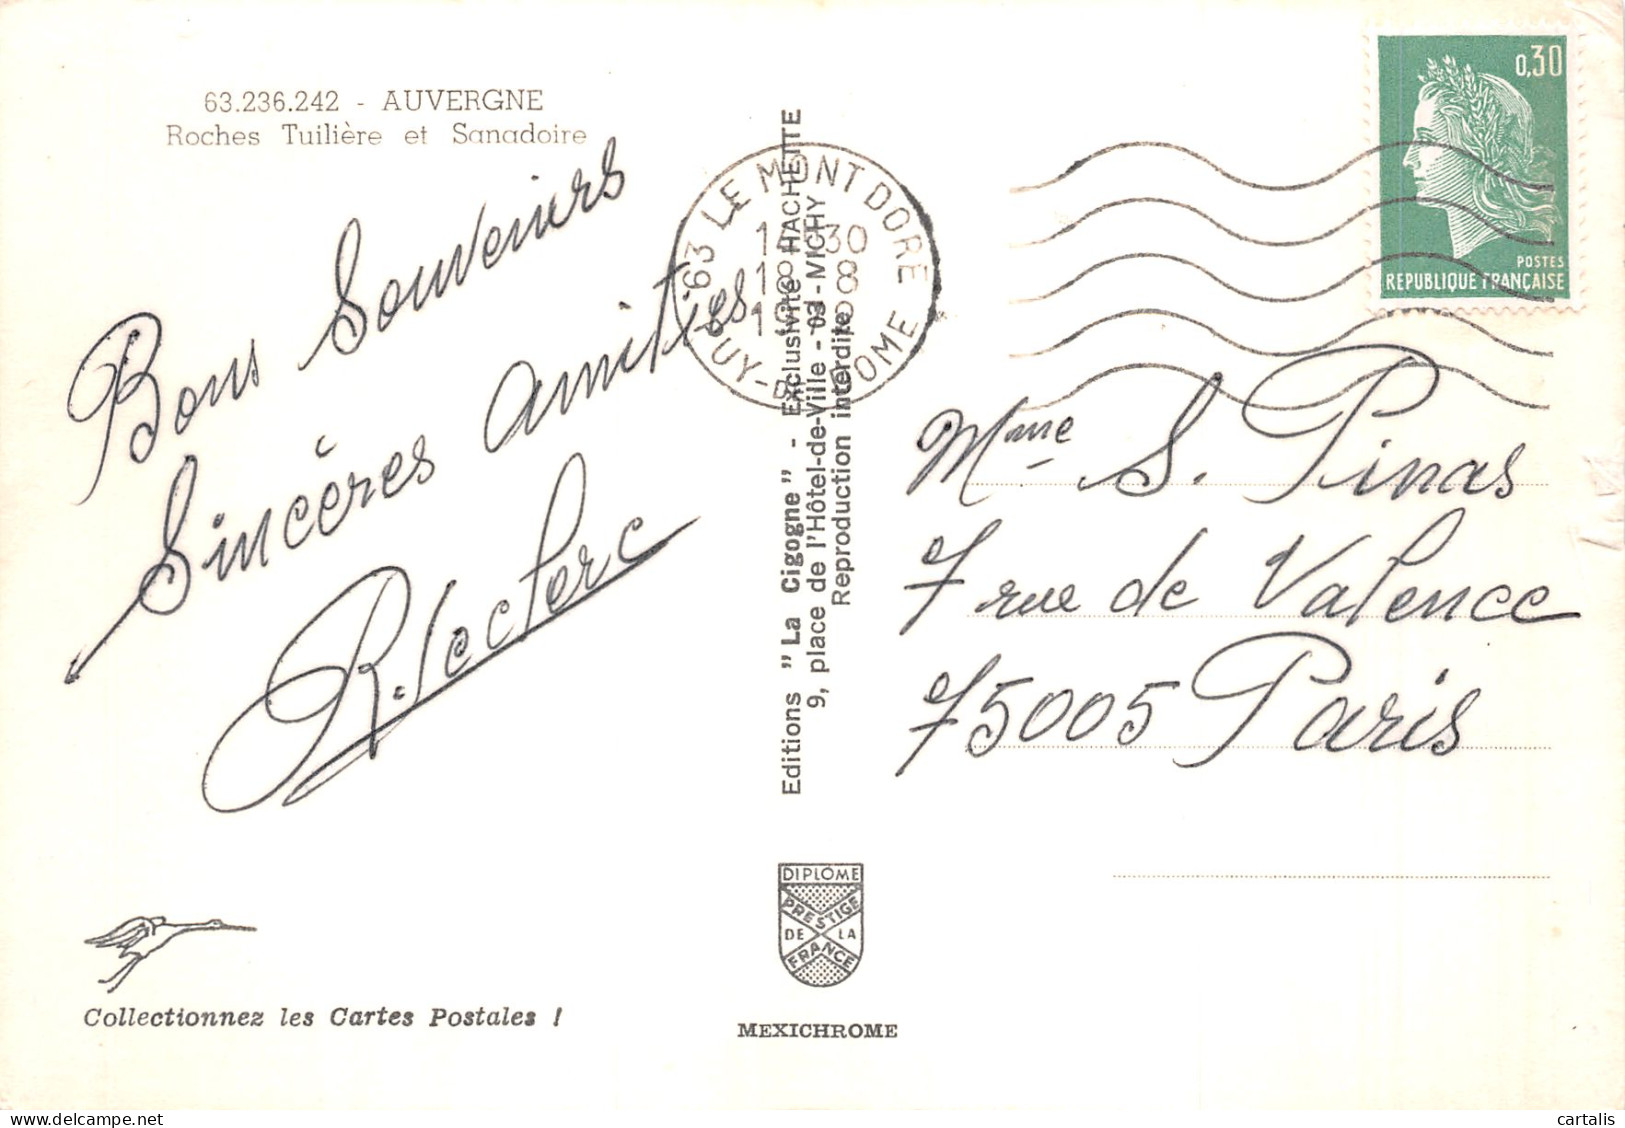 63.236.242 - AUVERGNE
Roches Tuilière et Sanadoire
Bons Souvenirs
Sincères amitiés
R. leclerc
Editions "La Cigogne" - Exclusivité HACHETTE
9, place de l'Hôtel-de-Ville - 03 - VICHY
Reproduction interdite
63 LE MONT DORE
PUY-DE-DOME
0,30
POSTES
REPUBLIQUE FRANÇAISE
Mme S. Pinas
7 rue de Valence
75005 Paris
DIPLÔME
PRESTIGE
DE LA
FRANCE
MEXICHROME
Collectionnez les Cartes Postales !
cartalis